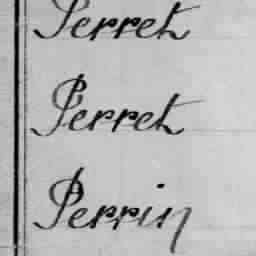 Perret
Perret
Perrin